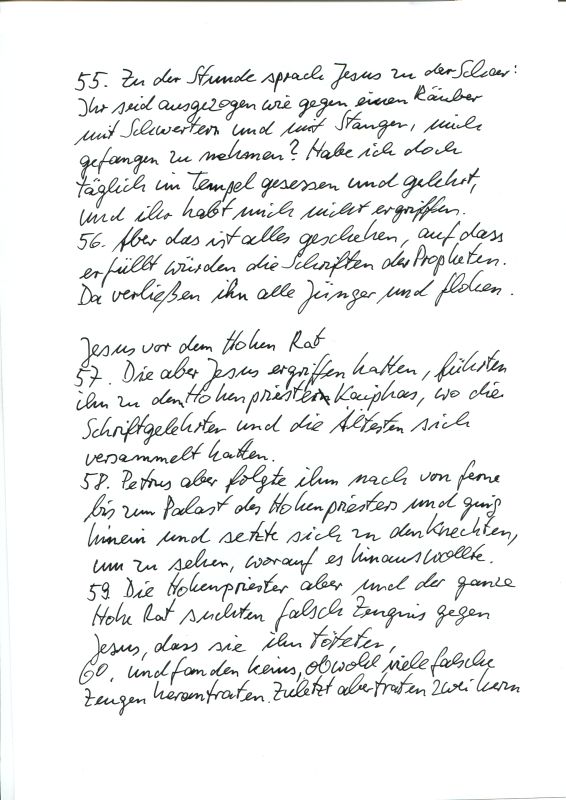 55. Zu der Stunde sprach Jesus zu der Schar:
Ihr seid ausgezogen wie gegen einen Räuber
mit Schwertern und mit Stangen, mich
gefangen zu nehmen? Habe ich doch
täglich im Tempel gesessen und gelehrt,
und ihr habt mich nicht ergriffen.
56. Aber das ist alles geschehen, auf dass
erfüllt würden die Schriften der Propheten.
Da verließen ihn alle Jünger und flohen.
Jesus vor dem Hohen Rat
57. Die aber Jesus ergriffen hatten, führten
ihn zu dem Hohenpriester Kaiphas, wo die
Schriftgelehrten und die Ältesten sich
versammelt hatten.
58. Petrus aber folgte ihm nach von ferne
bis zum Palast des Hohenpriesters und ging
hinein und setzte sich zu den Knechten,
um zu sehen, worauf es hinauswollte.
59. Die Hohenpriester aber und der ganze
Hohe Rat suchten falsch Zeugnis gegen
Jesus, dass sie ihn töteten,
60. und fanden keins, obwohl viele falsche
Zeugen herantraten. Zuletzt aber traten zwei herzu